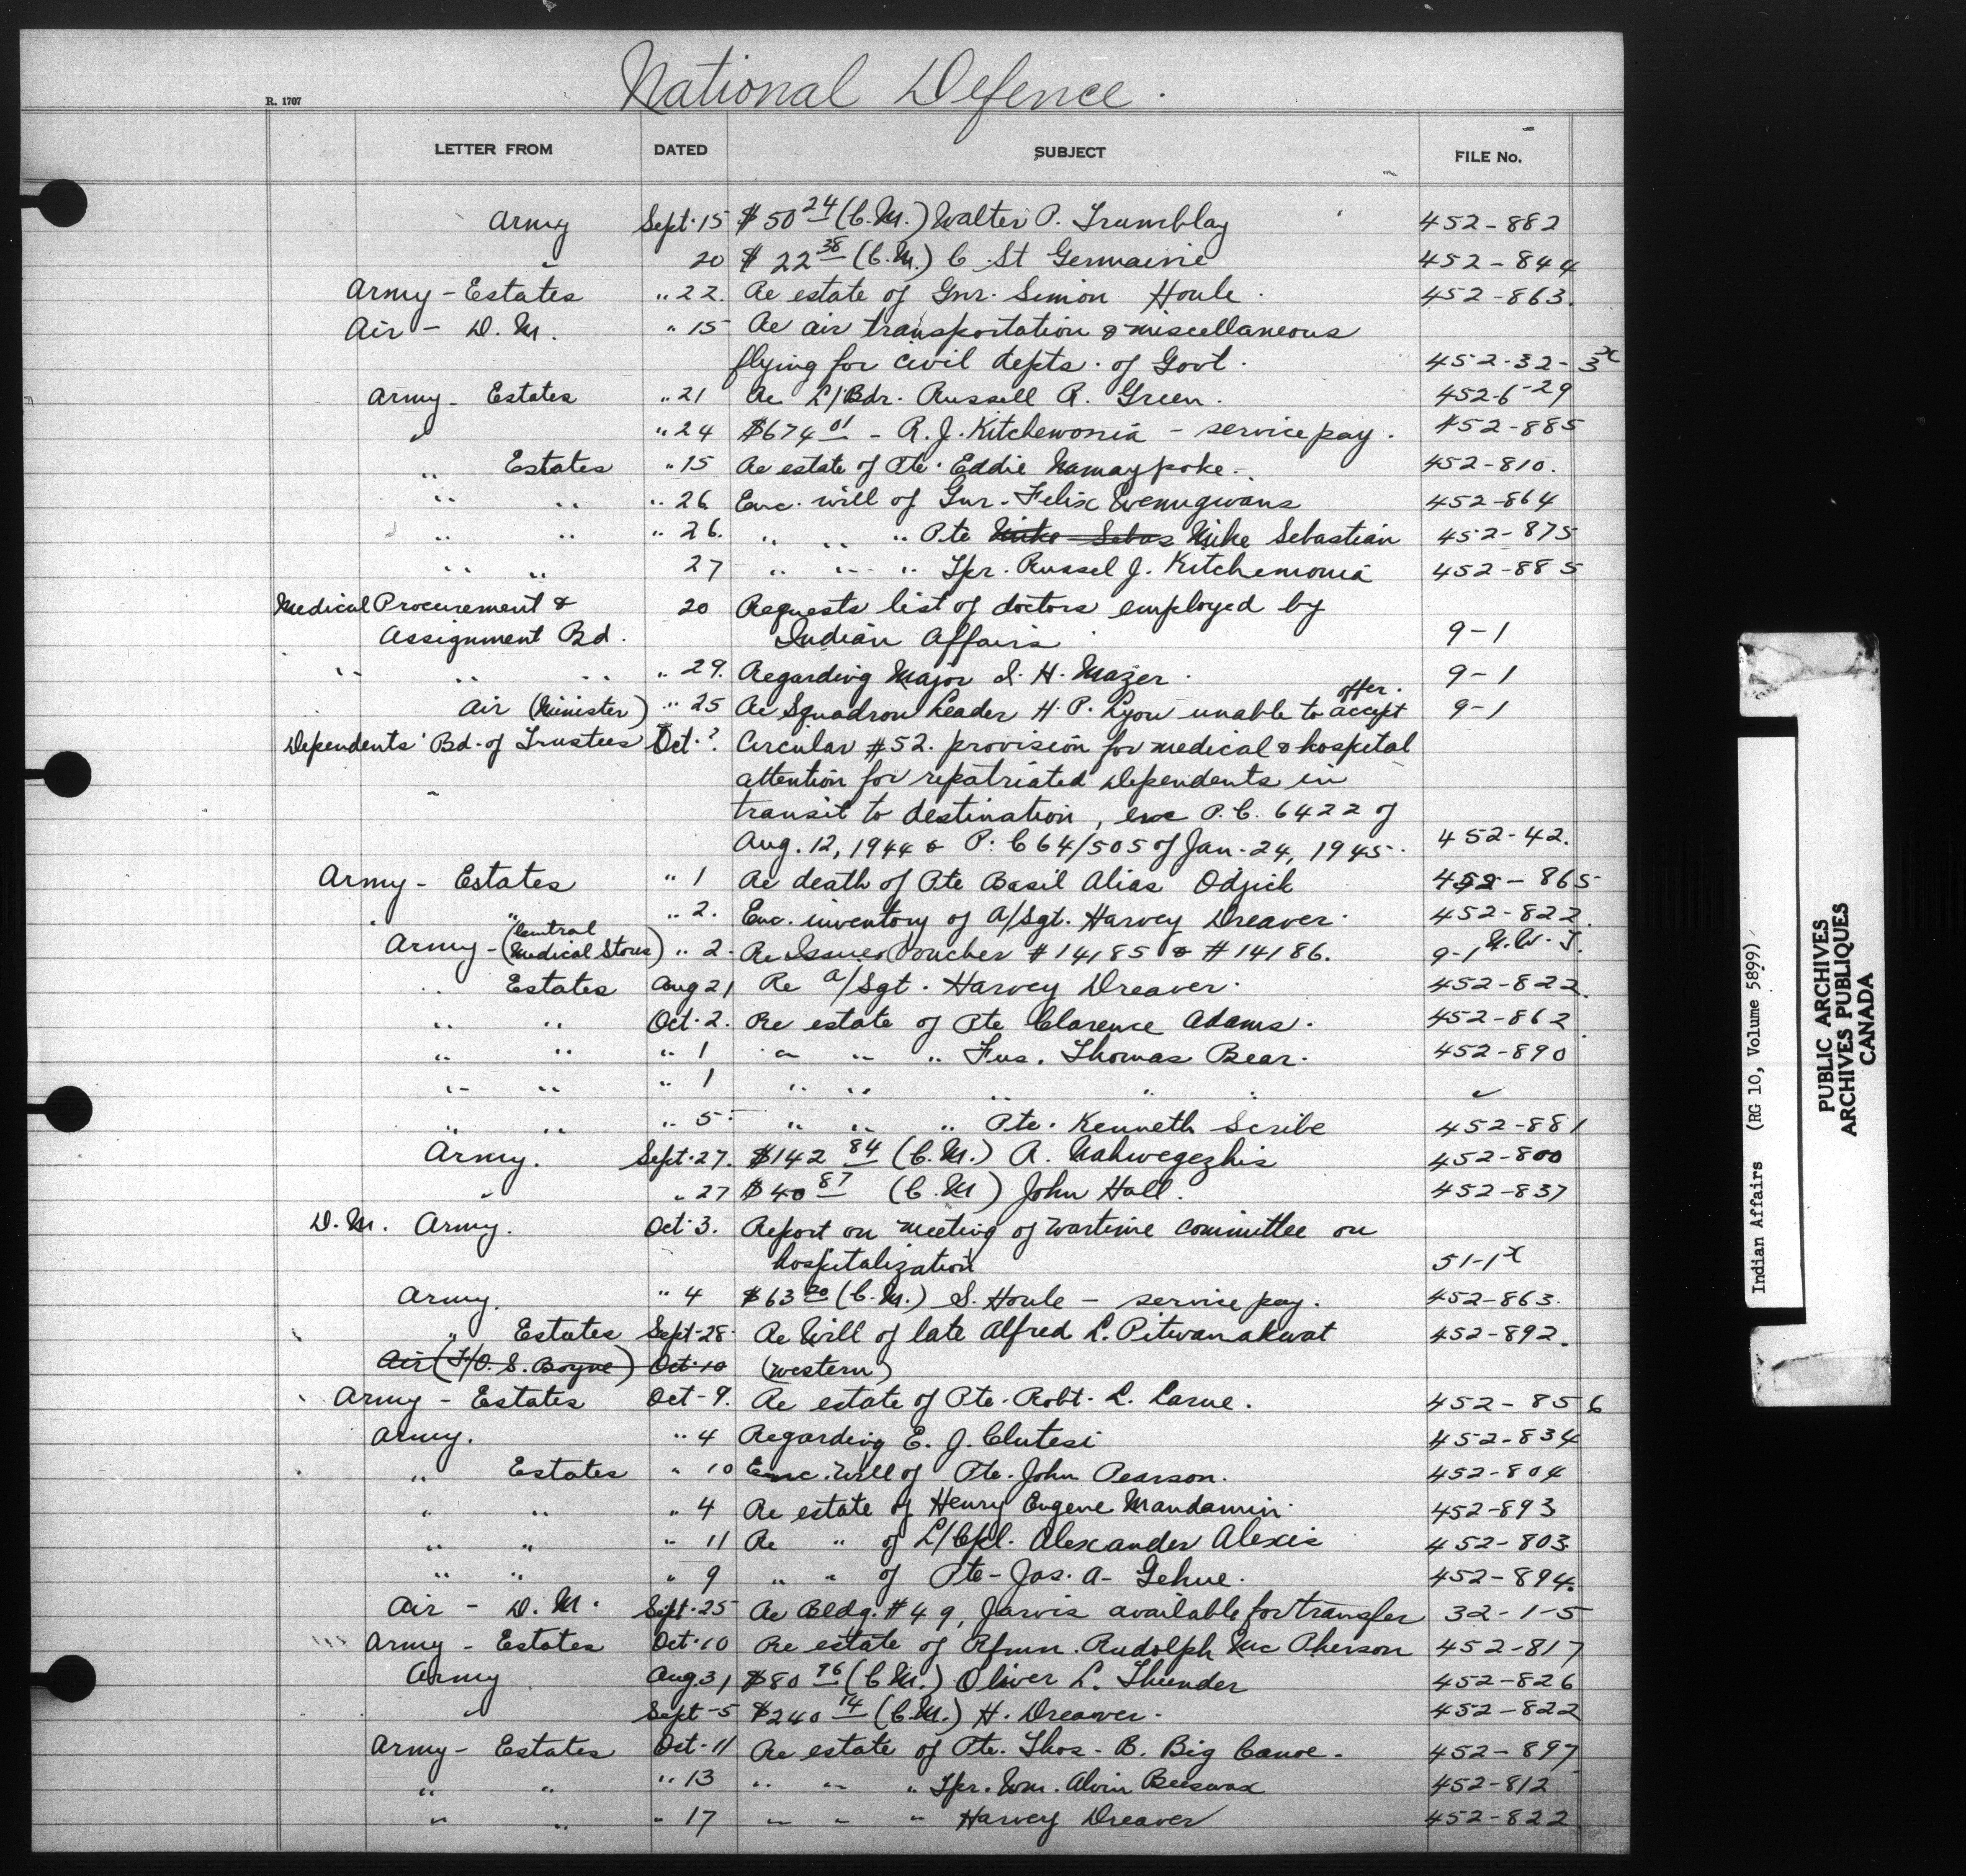 National Defence.
R. 1707
LETTER FROM DATED SUBJECT FILE No.
Army Sept. 15 $50 24 (C.M.) Walter P. Trumblay 452-882
" 20 $22 38 (C.M.) C. St Germaine 452-844
Army - Estates " 22. Re estate of Gnr. Simon Houle. 452-863.
Air - D.M. " 15 Re air transportation & miscellaneous
flying for civil depts. of Govt. 452-32-3x
Army - Estates " 21 Re L/Bdr. Russell R. Green. 452-6-29
" " 24 $674 01 - R.J. Kitchewonia - service pay. 452-885
" Estates " 15 Re estate of Pte. Eddie Namaypoke. 452-810.
" " " 26 Enc. will of Gnr. Felix Wemigwans 452-864
" " " 26. " " " Pte Mike Sebas Mike Sebastian 452-875
" " 27 " " " Tpr. Russel J. Kitchemonia 452-885
Medical Procurement & 20 Requests list of doctors employed by
Assignment Bd. Indian Affairs 9-1
" " " " 29. Regarding Major I. H. Mazer. 9-1
offer.
Air (Minister) " 25 Re Squadron Leader H. P. Lyon unable to accept 9-1
Dependents' Bd. of Trustees Oct. ? Circular #52. provision for medical & hospital
attention for repatriated Dependents in
transit to destination, enc P.C. 6422 of
Aug. 12, 1944 & P.C 64/505 of Jan. 24, 1945. 452-42.
Army - Estates " 1 Re death of Pte Basil Alias Odjick 452-865
" " 2. Enc. inventory of A/Sgt. Harvey Dreaver. 452-822.
Army - (Central Medical Stores) " 2. Re Issues Voucher #14185 & #14186. 9-1 N.W.T.
" Estates Aug 21 Re A/Sgt. Harvey Dreaver. 452-822.
" " Oct. 2. Re estate of Pte Clarence Adams. 452-862
" " " 1 " " " Fus. Thomas Bear. 452-890
" " " 1 " " " " " "
" " " 5 " " " Pte. Kenneth Scribe 452-881
Army. Sept. 27. $142 84 (C.M.) R. Nahwegezhis 452-800
" " 27 $40 87 (C.M) John Hall. 452-837
D.M. Army. Oct. 3. Report on meeting of wartime committee on
hospitalization 51-1x
Army. " 4 $63 20 (C.M.) S. Houle - service pay. 452-863.
" Estates Sept-28. Re Will of late Alfred L. Pitwanakwat 452-892.
Air (F/O. S. Boyne) Oct. 10 (western)
Army - Estates Oct-9. Re estate of Pte. Robt. L. Larue. 452-856
Army. " 4 Regarding E. J. Clutesi 452-834
" Estates " 10 Enc. Will of Pte. John Pearson. 452-804
" " " 4 Re estate of Henry Eugene Mandamin. 452-893
" " " 11 Re " of L/Cpl. Alexander Alexis 452-803.
" " " 9 " " of Pte- Jas. A- Gehue. 452-894.
Air - D.M. Sept. 25 Re Bldg. #49, Jarvis available for transfer 32-1-5
Army - Estates Oct. 10 Re estate of Rfmn. Rudolph Mc Pherson 452-817
Army Aug. 31 $80 96 (C.M.) Oliver L. Thunder 452-826
" Sept-5 $240 14 (C.M.) H. Dreaver. 452-822
Army - Estates Oct. 11 Re estate of Pte. Thos. B. Big Canoe. 452-897
" " " 13 " " " Tpr. Wm. Alvin Beeswax 452-812
" " " 17 " " " Harvey Dreaver 452-822
Indian Affairs (RG 10, Volume 5899)
PUBLIC ARCHIVES
ARCHIVES PUBLIQUES
CANADA